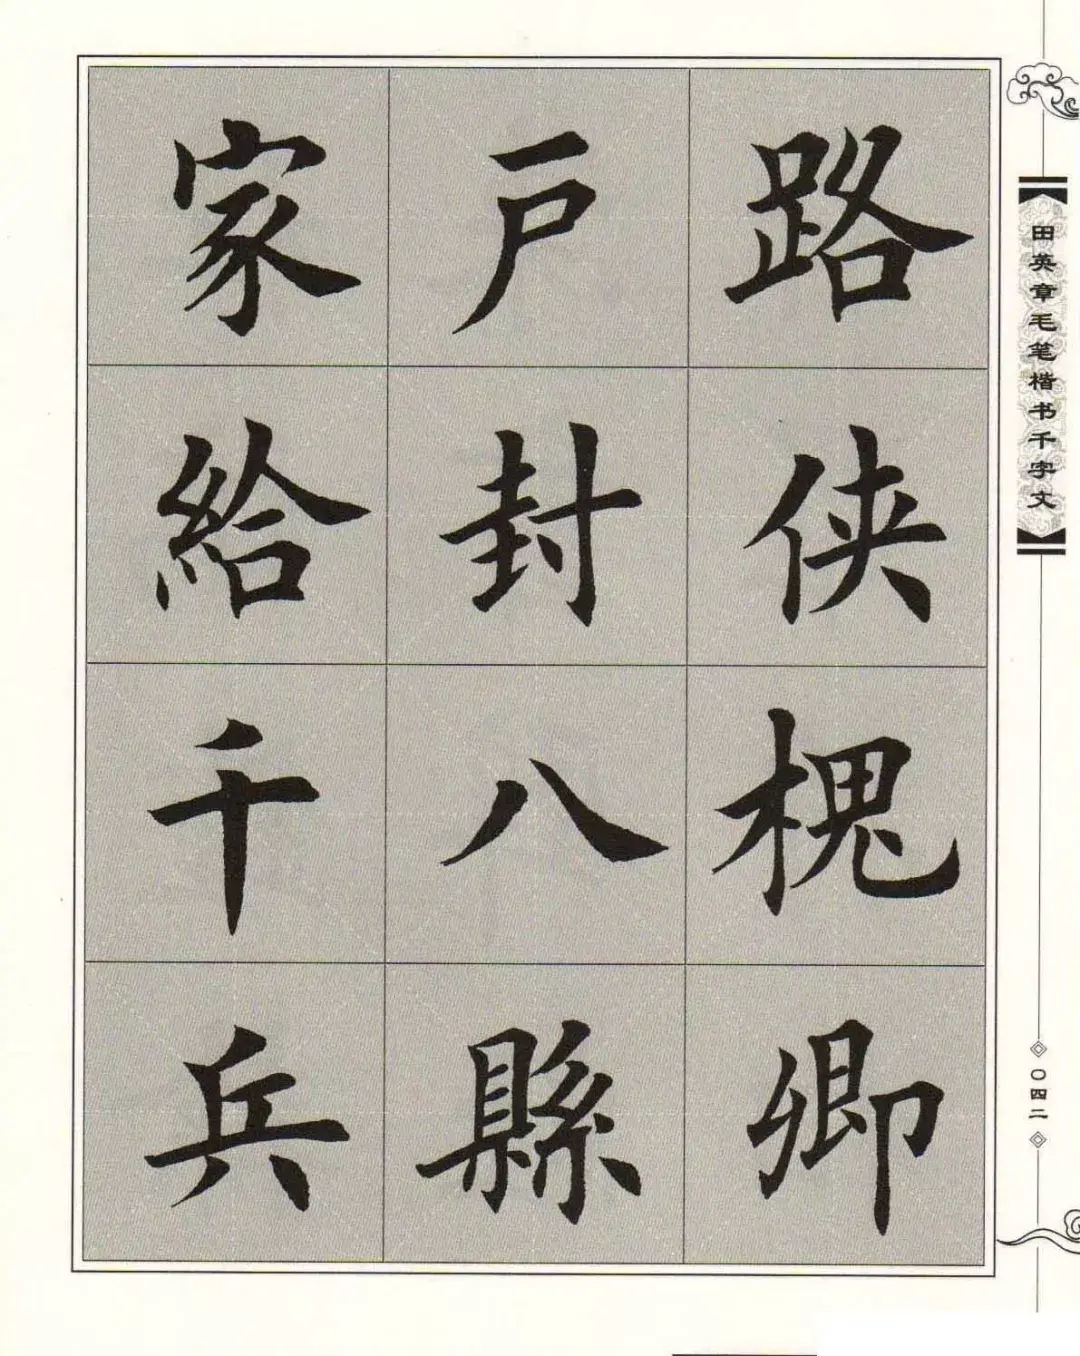 路侠槐卿
户封八縣
家給千兵
田英章毛笔楷书千字文
〇四二